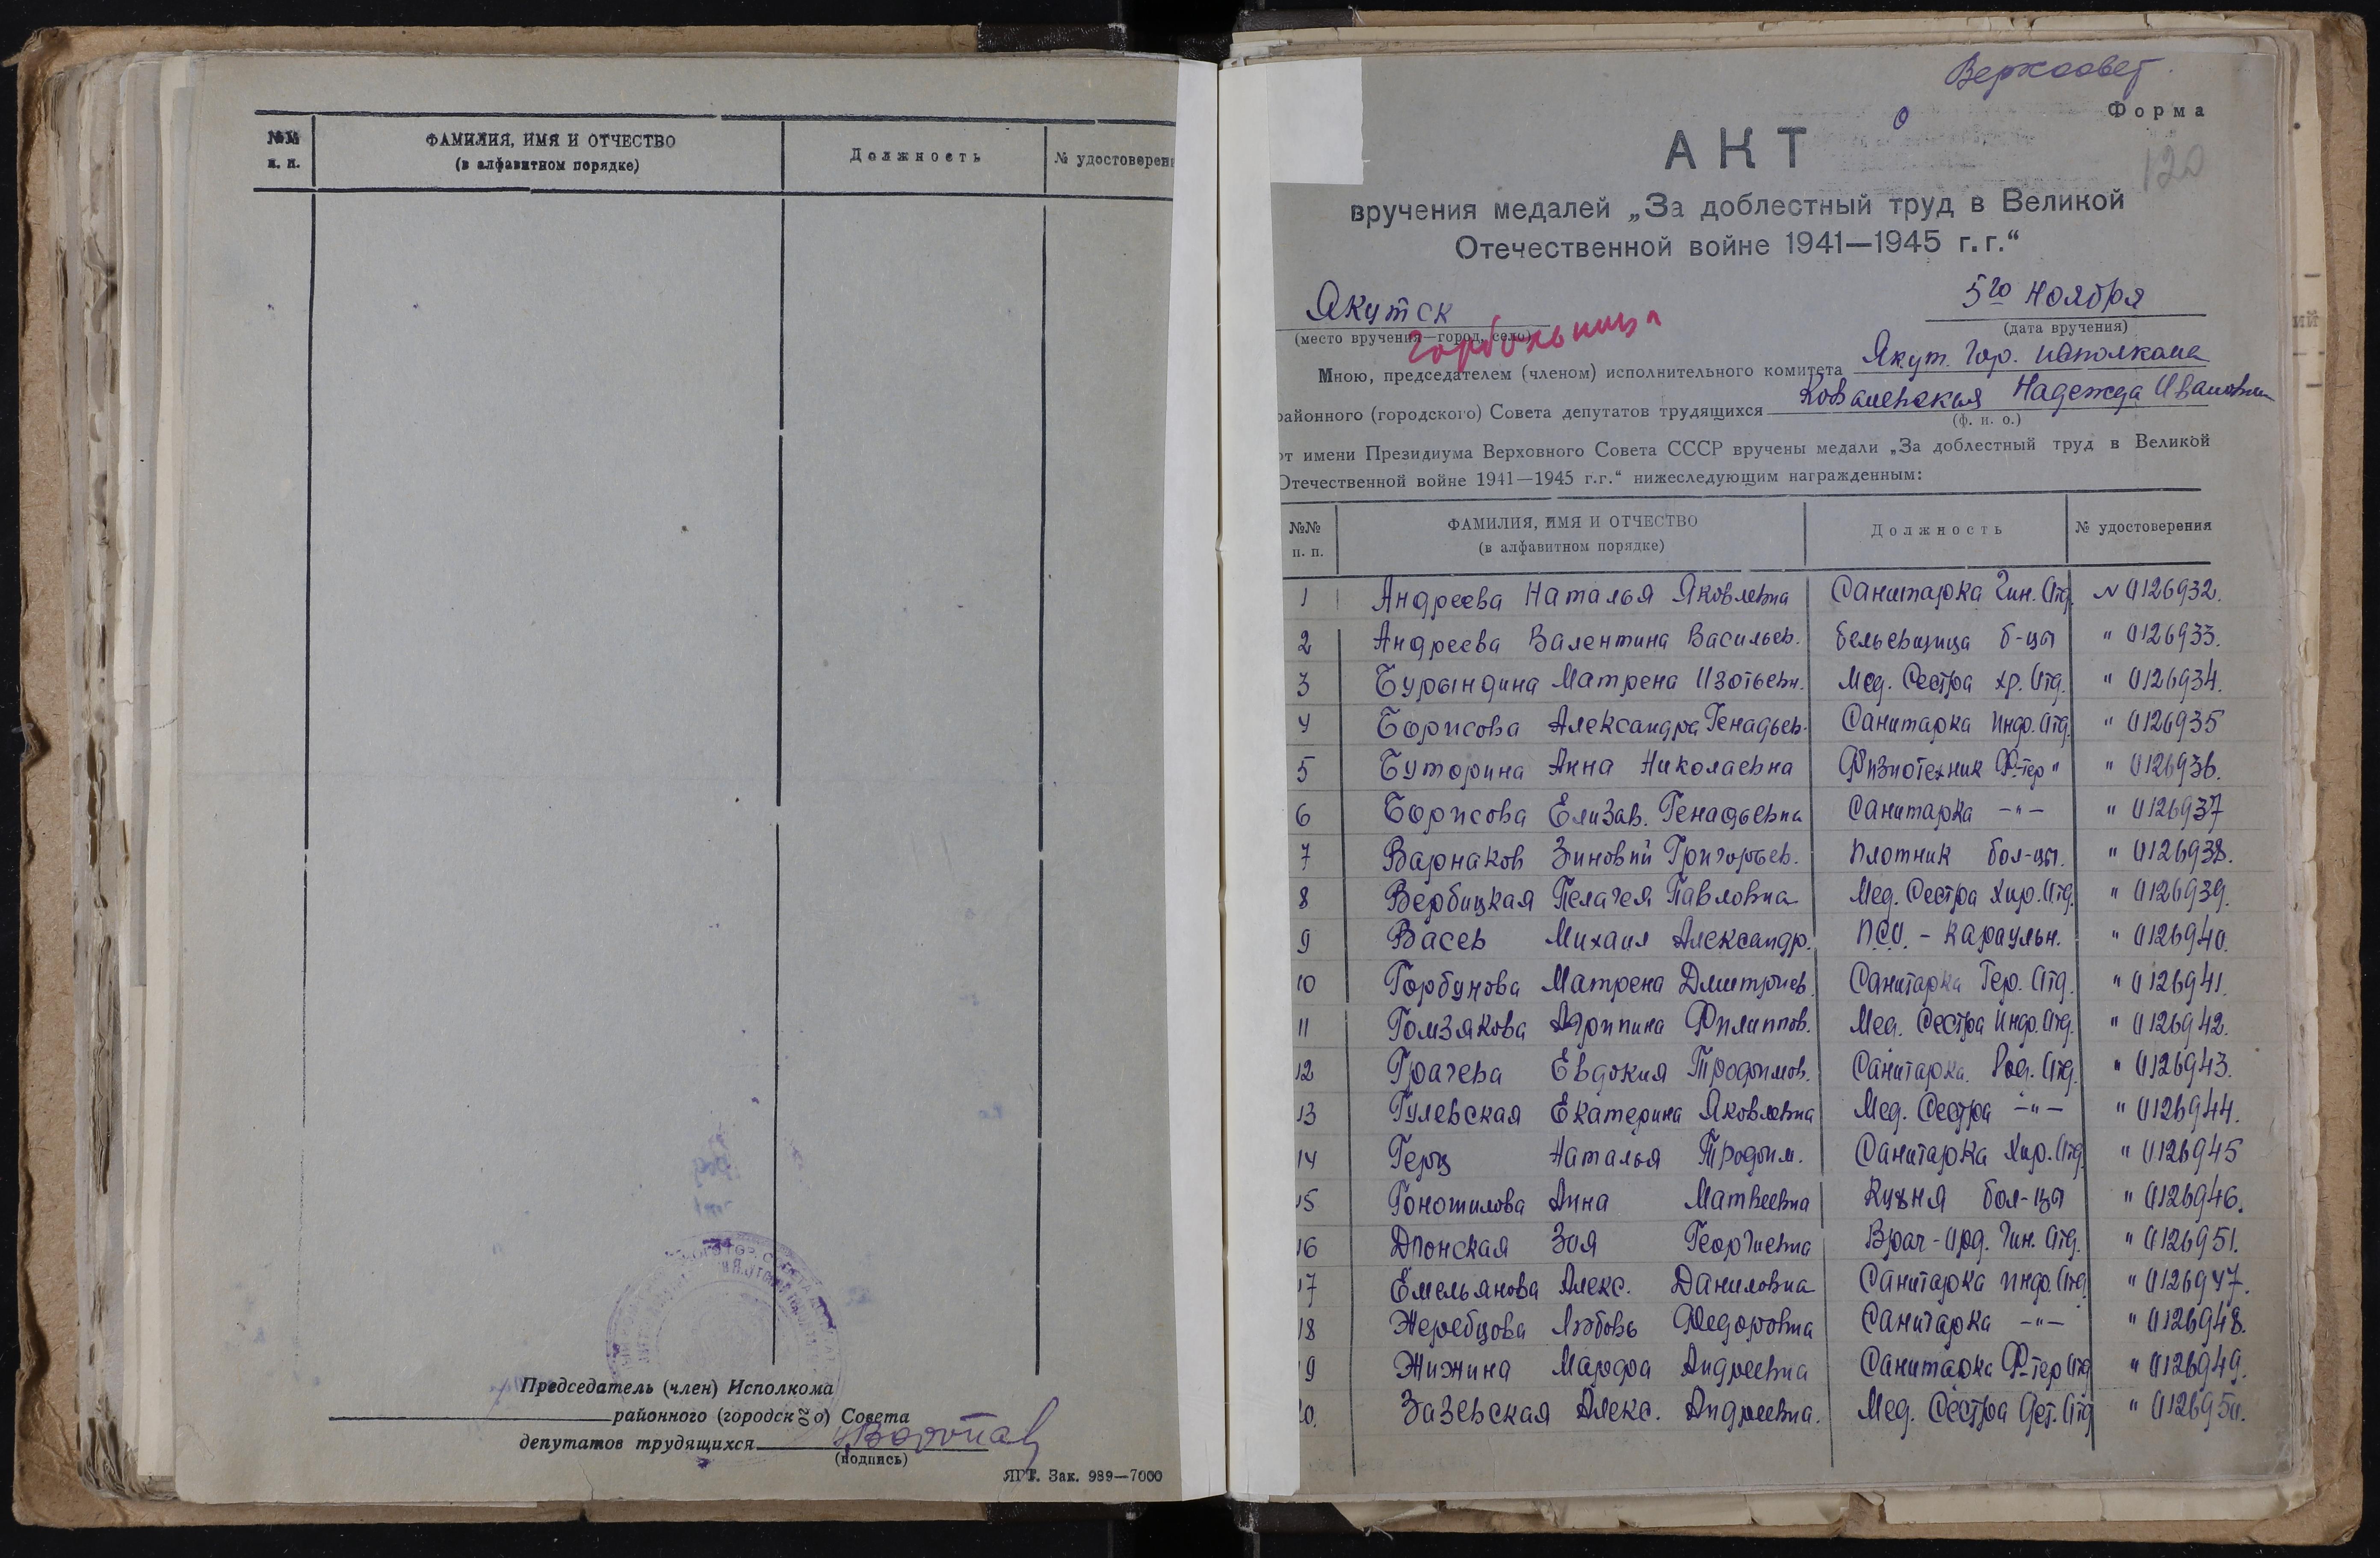 №№
п. п.
ФАМИЛИЯ, ИМЯ И ОТЧЕСТВО
(в алфавитном порядке)
Должность
№ удостоверен
Председатель (член) Исполкома
районного (городского) Совета
депутатов трудящихся
(подпись)
ЯГТ. Зак. 989—7000
Верхсовет.
Форма
120
АКТ
вручения медалей „За доблестный труд в Великой
Отечественной войне 1941—1945 г.г.“
Якутск
5го ноября
(место вручения—город, село)
(дата вручения)
Горбольница
Мною, председателем (членом) исполнительного комитета Якут. Гор. исполкома
районного (городского) Совета депутатов трудящихся Коваленская Надежда Ивановна
(ф. и. о.)
от имени Президиума Верховного Совета СССР вручены медали „За доблестный труд в Великой
Отечественной войне 1941—1945 г.г.“ нижеследующим награжденным:
№№ п. п. ФАМИЛИЯ, ИМЯ И ОТЧЕСТВО (в алфавитном порядке) Должность № удостоверения
1 Андреева Наталья Яковлевна Санитарка Гин. Отд. № 0126932.
2 Андреева Валентина Васильев. бельевщица б-цы " 0126933.
3 Бурындина Матрена Изотьевн. Мед. Сестра хр. Отд. " 0126934.
4 Борисова Александра Генадьев. Санитарка Инф. Отд. " 0126935
5 Буторина Анна Николаевна Физиотехник Ф-тер " " 0126936.
6 Борисова Елизав. Генадьевна Санитарка -"- " 0126937
7 Варнаков Зиновий Григорьев. Плотник бол-цы. " 0126938.
8 Вербицкая Пелагея Павловна Мед. Сестра Хир. Отд. " 0126939.
9 Васев Михаил Александр. П.С.О. - караульн. " 0126940.
10 Горбунова Матрена Дмитриев. Санитарка Тер. Отд. " 0126941.
11 Гомзякова Агрипина Филиппов. Мед. Сестра Инф. Отд. " 0126942.
12 Грачева Евдокия Трофимов. Санитарка. Род. Отд. " 0126943.
13 Гулевская Екатерина Яковлевна Мед. Сестра -"- " 0126944.
14 Герц Наталья Трофим. Санитарка Хир. Отд. " 0126945
15 Гоношилова Анна Матвеевна Кухня бол-цы " 0126946.
16 Донская Зоя Георгиевна Врач-Орд. Гин. Отд. " 0126951.
17 Емельянова Алекс. Даниловна Санитарка Инф. Отд " 0126947.
18 Жеребцова Любовь Федоровна Санитарка -"- " 0126948.
19 Жижина Марфа Андреевна Санитарка Ф-тер Отд " 0126949.
20. Зазевская Алекс. Андреевна. Мед. Сестра Дет. Отд " 0126950.